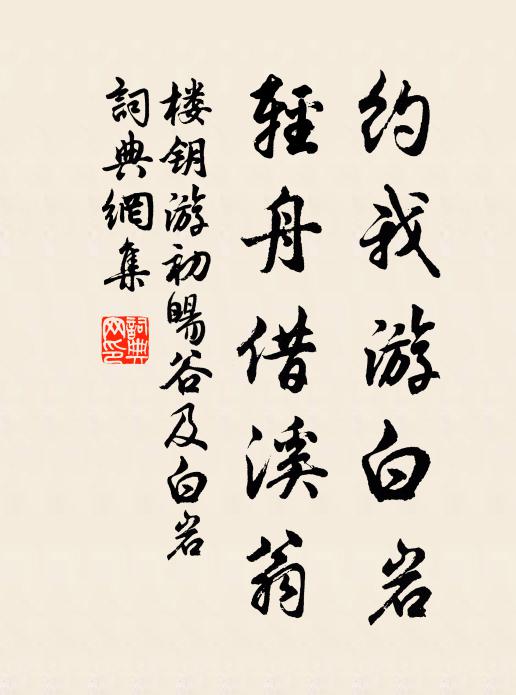 约我游白岩
輕舟借溪翁
楼钥游初暘谷及白岩
詞典網集
詞典网印